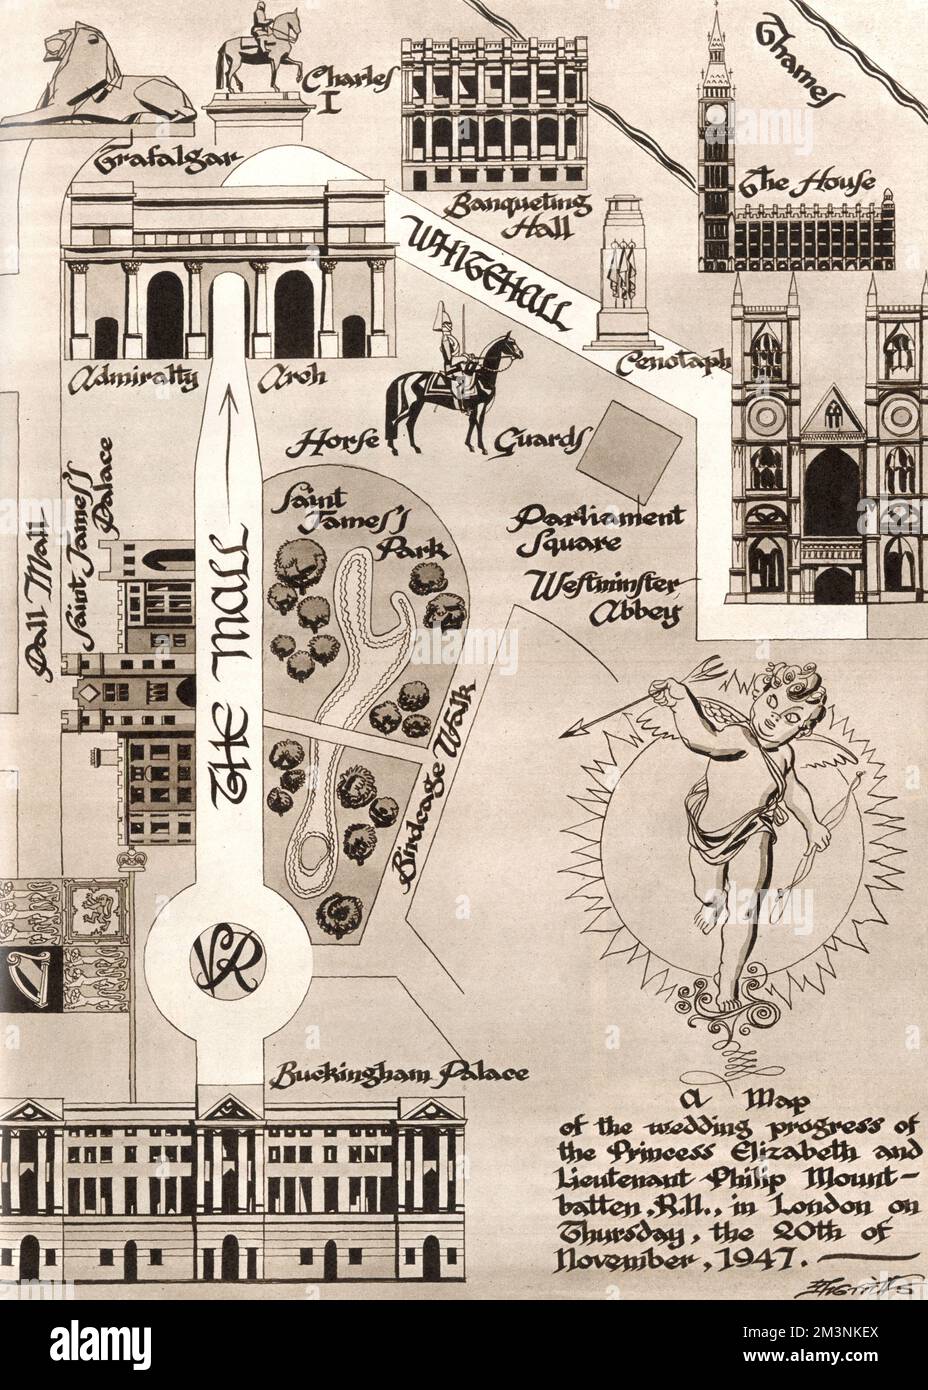 Thames
Charles
I
Trafalgar
The House
Banqueting
Hall
WHITEHALL
Cenotaph
Admiralty Arch
Horse Guards
Saint
James's
Park
Parliament
Square
Westminster
Abbey
Pall Mall
Saint James's
Palace
THE MALL
Birdcage Walk
VR
Buckingham Palace
A Map
of the wedding progress of
the Princess Elizabeth and
Lieutenant Philip Mount-
batten, R.N., in London on
Thursday, the 20th of
November, 1947.
alamy
Image ID: 2M3NKEX
www.alamy.com